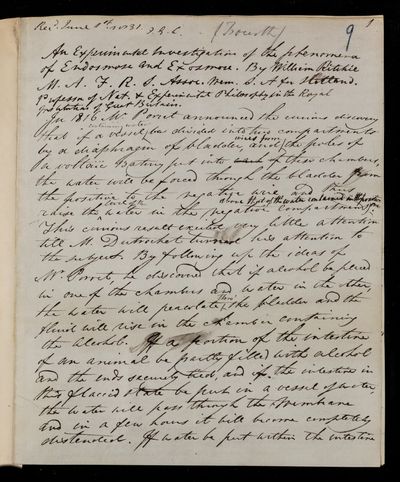 Recd. June 1831. J.G.C. (Fourth) 1
9
An Experimental Investigation of the phenomena
of Endosmose and Exosmose. By William Ritchie
M. A. F. R. S. Assoc. Mem. S. A for Scotland.
Professor of Nat. & Experimental Philosophy in the Royal
Institution of Great Britain.
In 1816 Mr Porret announced the curious discovery
containing water
that if a vessel be divided into two compartments
by a diaphragm of bladder, and wires from the poles of
a voltaic battery put into each of these chambers,
the water will be forced through the bladder from
the positive to the negative wire and thus
raise the water in the negative compartment
above that of the water contained in the positive one.
This curious result excited very little attention
till M. Dutrochet turned his attention to
the subject. By following up the ideas of
Mr Porret, he discovered that if alcohol be placed
in one of the chambers and water in the other,
the water will percolate thro' the bladder and the
fluid will rise in the chamber containing
the alcohol. If a portion of the intestine
of an animal be partly filled with alcohol
and the ends securely tied, and if the intestine in
this flaccid state be put in a vessel of water,
the water will pass through the membrane
and in a few hours it will become completely
distended. If water be put within the intestine